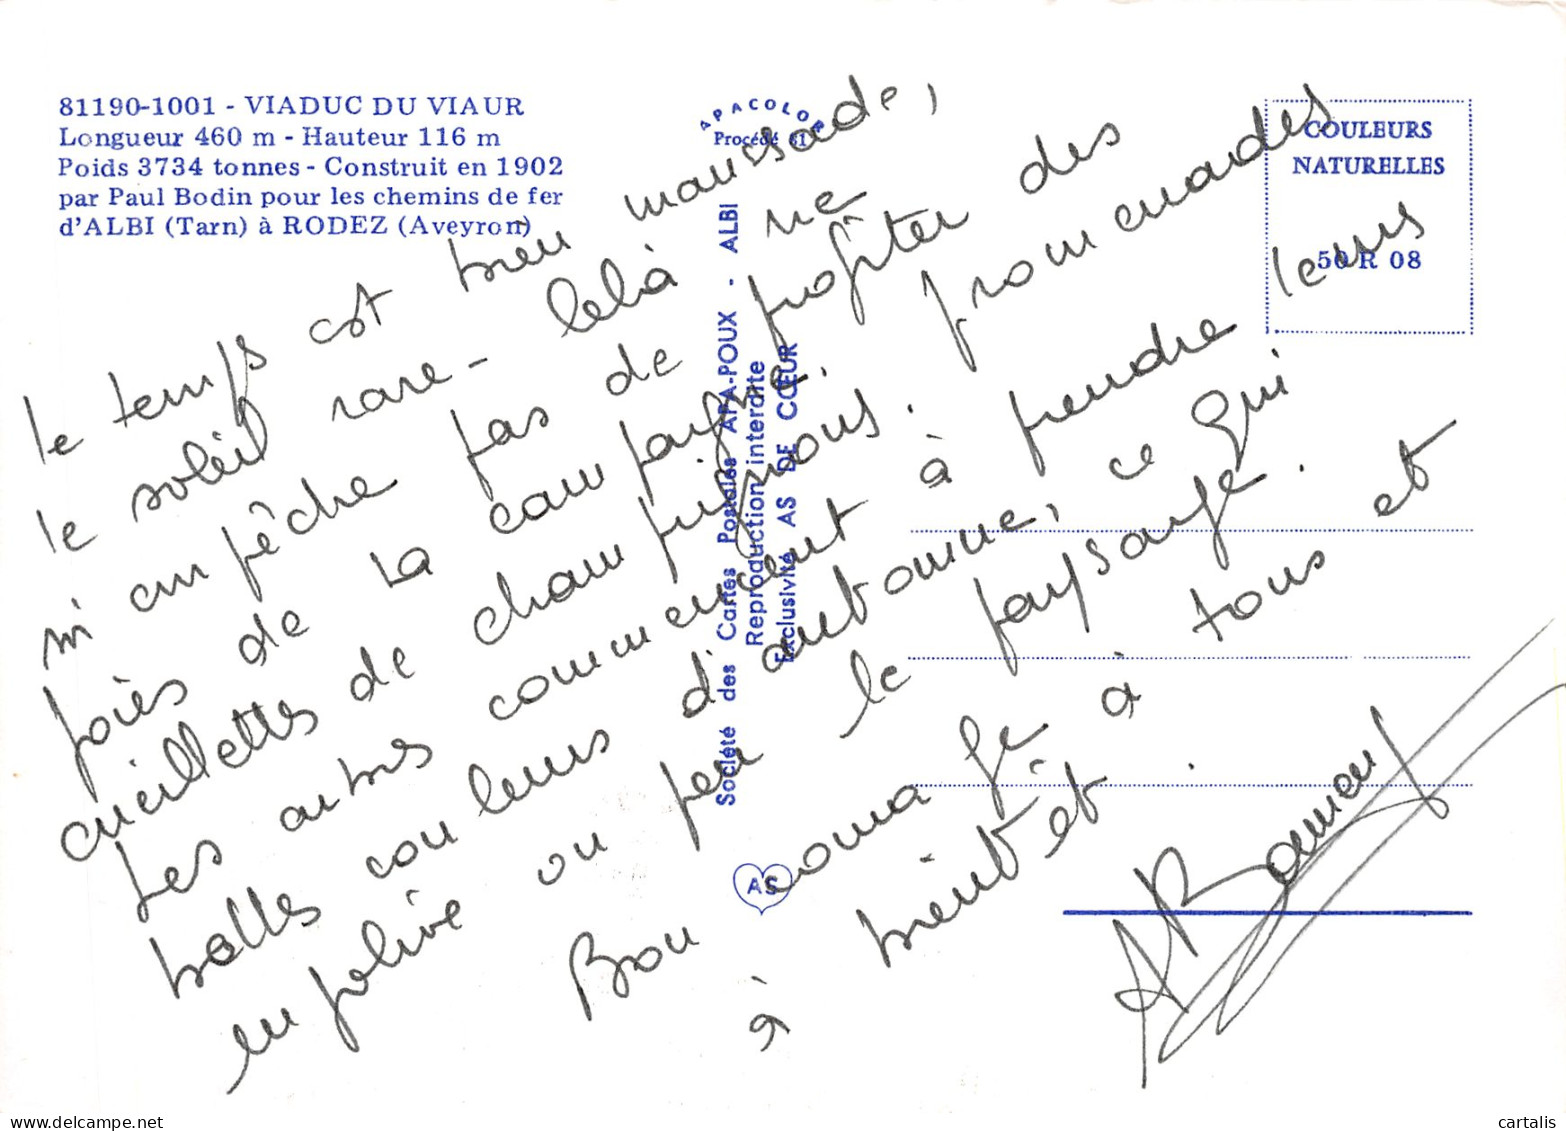 81190-1001 - VIADUC DU VIAUR
Longueur 460 m - Hauteur 116 m
Poids 3734 tonnes - Construit en 1902
par Paul Bodin pour les chemins de fer
d'ALBI (Tarn) à RODEZ (Aveyron)
APACOLOR
Procédé 81
COULEURS
NATURELLES
50 R 08
Société des Cartes Postales APA-POUX - ALBI
Reproduction interdite
Exclusivité AS DE CŒUR
AS
Le temps est bien maussade,
le soleil rare - Celà ne
m'empêche pas de profiter des
joies de la campagne, promenades
cueillettes de champignons.
Les arbres commencent à prendre leurs
belles couleurs d'automne, ce qui
enjolive un peu le paysage.
Bon courage à tous et
à bientôt.
cartalis
www.delcampe.net